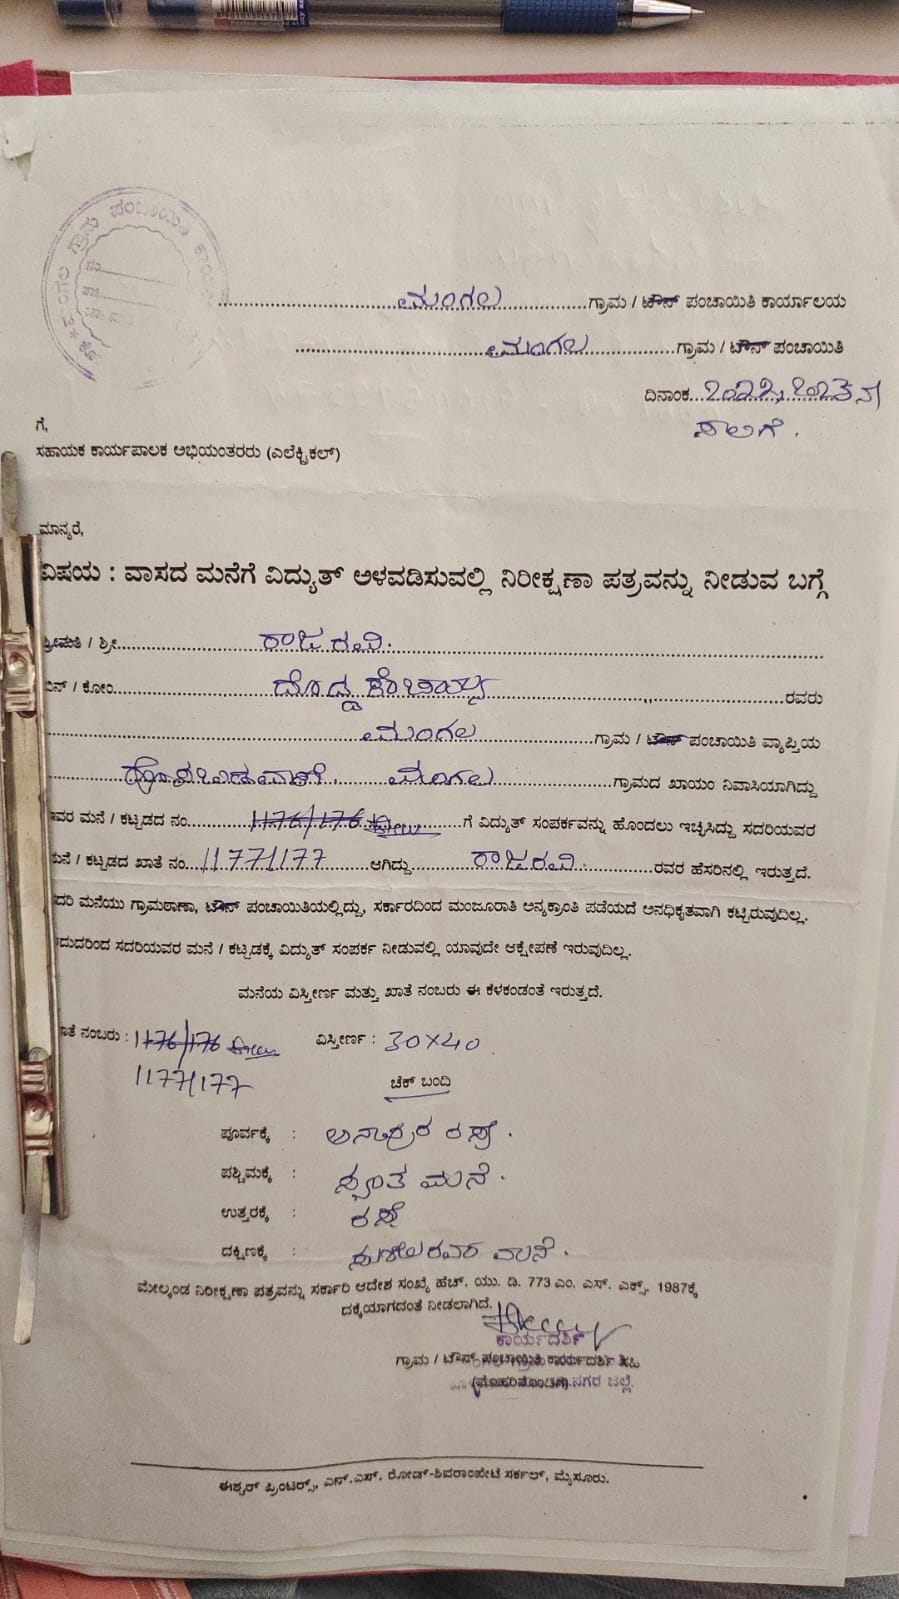 ಮಂಗಲ ಗ್ರಾಮ ಪಂಚಾಯಿತಿ
ಮಂಗಲ ಗ್ರಾಮ / ಟೌನ್ ಪಂಚಾಯಿತಿ ಕಾರ್ಯಾಲಯ
ಮಂಗಲ ಗ್ರಾಮ / ಟೌನ್ ಪಂಚಾಯಿತಿ
ದಿನಾಂಕ
ಸಾಲಿಗೆ .
ಗೆ,
ಸಹಾಯಕ ಕಾರ್ಯಪಾಲಕ ಅಭಿಯಂತರರು (ಎಲೆಕ್ಟ್ರಿಕಲ್)
ಮಾನ್ಯರೆ,
ವಿಷಯ : ವಾಸದ ಮನೆಗೆ ವಿದ್ಯುತ್ ಅಳವಡಿಸುವಲ್ಲಿ ನಿರೀಕ್ಷಣಾ ಪತ್ರವನ್ನು ನೀಡುವ ಬಗ್ಗೆ
ಶ್ರೀಮತಿ / ಶ್ರೀ ರಾಜರವಿ.
ಬಿನ್ / ಕೋಂ ರವರು
ಮಂಗಲ ಗ್ರಾಮ / ಟೌನ್ ಪಂಚಾಯಿತಿ ವ್ಯಾಪ್ತಿಯ
ಮಂಗಲ ಗ್ರಾಮದ ಖಾಯಂ ನಿವಾಸಿಯಾಗಿದ್ದು
ಮನೆ / ಕಟ್ಟಡದ ನಂ 1176/176 ಗೆ ವಿದ್ಯುತ್ ಸಂಪರ್ಕವನ್ನು ಹೊಂದಲು ಇಚ್ಛಿಸಿದ್ದು ಸದರಿಯವರ
ಮನೆ / ಕಟ್ಟಡದ ಖಾತೆ ನಂ 1177/177 ಆಗಿದ್ದು ರಾಜರವಿ. ರವರ ಹೆಸರಿನಲ್ಲಿ ಇರುತ್ತದೆ.
ಮನೆಯು ಗ್ರಾಮಠಾಣಾ, ಟೌನ್ ಪಂಚಾಯಿತಿಯಲ್ಲಿದ್ದು, ಸರ್ಕಾರದಿಂದ ಮಂಜೂರಾತಿ ಅನ್ಯಕ್ರಾಂತಿ ಪಡೆಯದೆ ಅನಧಿಕೃತವಾಗಿ ಕಟ್ಟಿರುವುದಿಲ್ಲ.
ಸದರಿಯವರ ಮನೆ / ಕಟ್ಟಡಕ್ಕೆ ವಿದ್ಯುತ್ ಸಂಪರ್ಕ ನೀಡುವಲ್ಲಿ ಯಾವುದೇ ಆಕ್ಷೇಪಣೆ ಇರುವುದಿಲ್ಲ.
ಮನೆಯ ವಿಸ್ತೀರ್ಣ ಮತ್ತು ಖಾತೆ ನಂಬರು ಈ ಕೆಳಕಂಡಂತೆ ಇರುತ್ತದೆ.
ಖಾತೆ ನಂಬರು : 1176/176 ವಿಸ್ತೀರ್ಣ : 30×40
1177/177
ಚೆಕ್ ಬಂದಿ
ಪೂರ್ವಕ್ಕೆ : ರಸ್ತೆ .
ಪಶ್ಚಿಮಕ್ಕೆ : ಸ್ವಂತ ಮನೆ .
ಉತ್ತರಕ್ಕೆ : ರಸ್ತೆ
ದಕ್ಷಿಣಕ್ಕೆ : ಮನೆ .
ಮೇಲ್ಕಂಡ ನಿರೀಕ್ಷಣಾ ಪತ್ರವನ್ನು ಸರ್ಕಾರಿ ಆದೇಶ ಸಂಖ್ಯೆ ಹೆಚ್. ಯು. ಡಿ. 773 ಎಂ. ಎಸ್. ಎಕ್ಸ್. 1987ಕ್ಕೆ
ದಕ್ಕೆಯಾಗದಂತೆ ನೀಡಲಾಗಿದೆ.
ಕಾರ್ಯದರ್ಶಿ
ಗ್ರಾಮ / ಟೌನ್ ಪಂಚಾಯಿತಿ ಕಾರ್ಯದರ್ಶಿ ಸಹಿ
(ಮೊಹರಿನೊಂದಿಗೆ) ನಗರ ಜಿಲ್ಲೆ
ಈಶ್ವರ್ ಪ್ರಿಂಟರ‍್ಸ್, ಎನ್.ಎಸ್. ರೋಡ್-ಶಿವರಾಂಪೇಟೆ ಸರ್ಕಲ್, ಮೈಸೂರು.